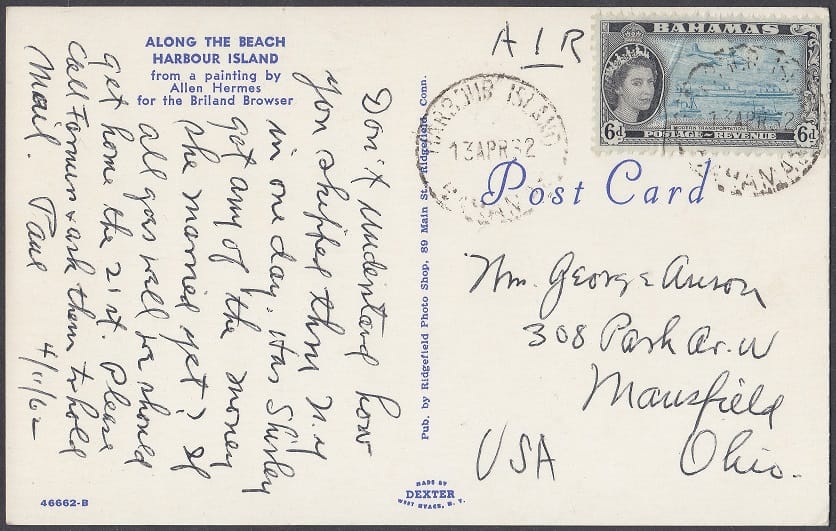 ALONG THE BEACH
HARBOUR ISLAND
from a painting by
Allen Hermes
for the Briland Browser
Don't understand how
you skipped thru N.Y
in one day. Has Shirley
got any of the money
she married yet? If
all goes well we should
get home the 21st. Please
call Farmers & ask them to hold
Mail. Paul 4/11/62
46662-B
Pub. by Ridgefield Photo Shop, 89 Main St., Ridgefield, Conn.
MADE BY
DEXTER
WEST NYACK, N. Y.
AIR
BAHAMAS
6d
MODERN TRANSPORTATION
POSTAGE - REVENUE
6d
HARBOUR ISLAND
13APR62
BAHAMAS
13APR62
BAHAMAS
Post Card
George Anson
308 Park Av. W
Mansfield
Ohio.
USA